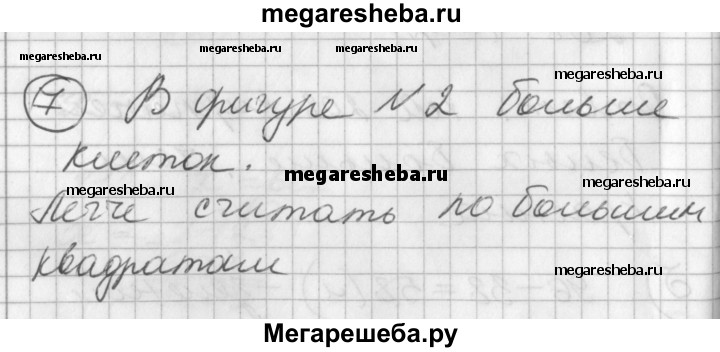 megaresheba.ru
megaresheba.ru megaresheba.ru
7 В фигуре №2 больше
megaresheba.ru
клеток.
megaresheba.ru
megaresheba.ru megaresheba.ru
Легче считать по большим
квадратам
megaresheba.ru megaresheba.ru
Мегарешеба.ру